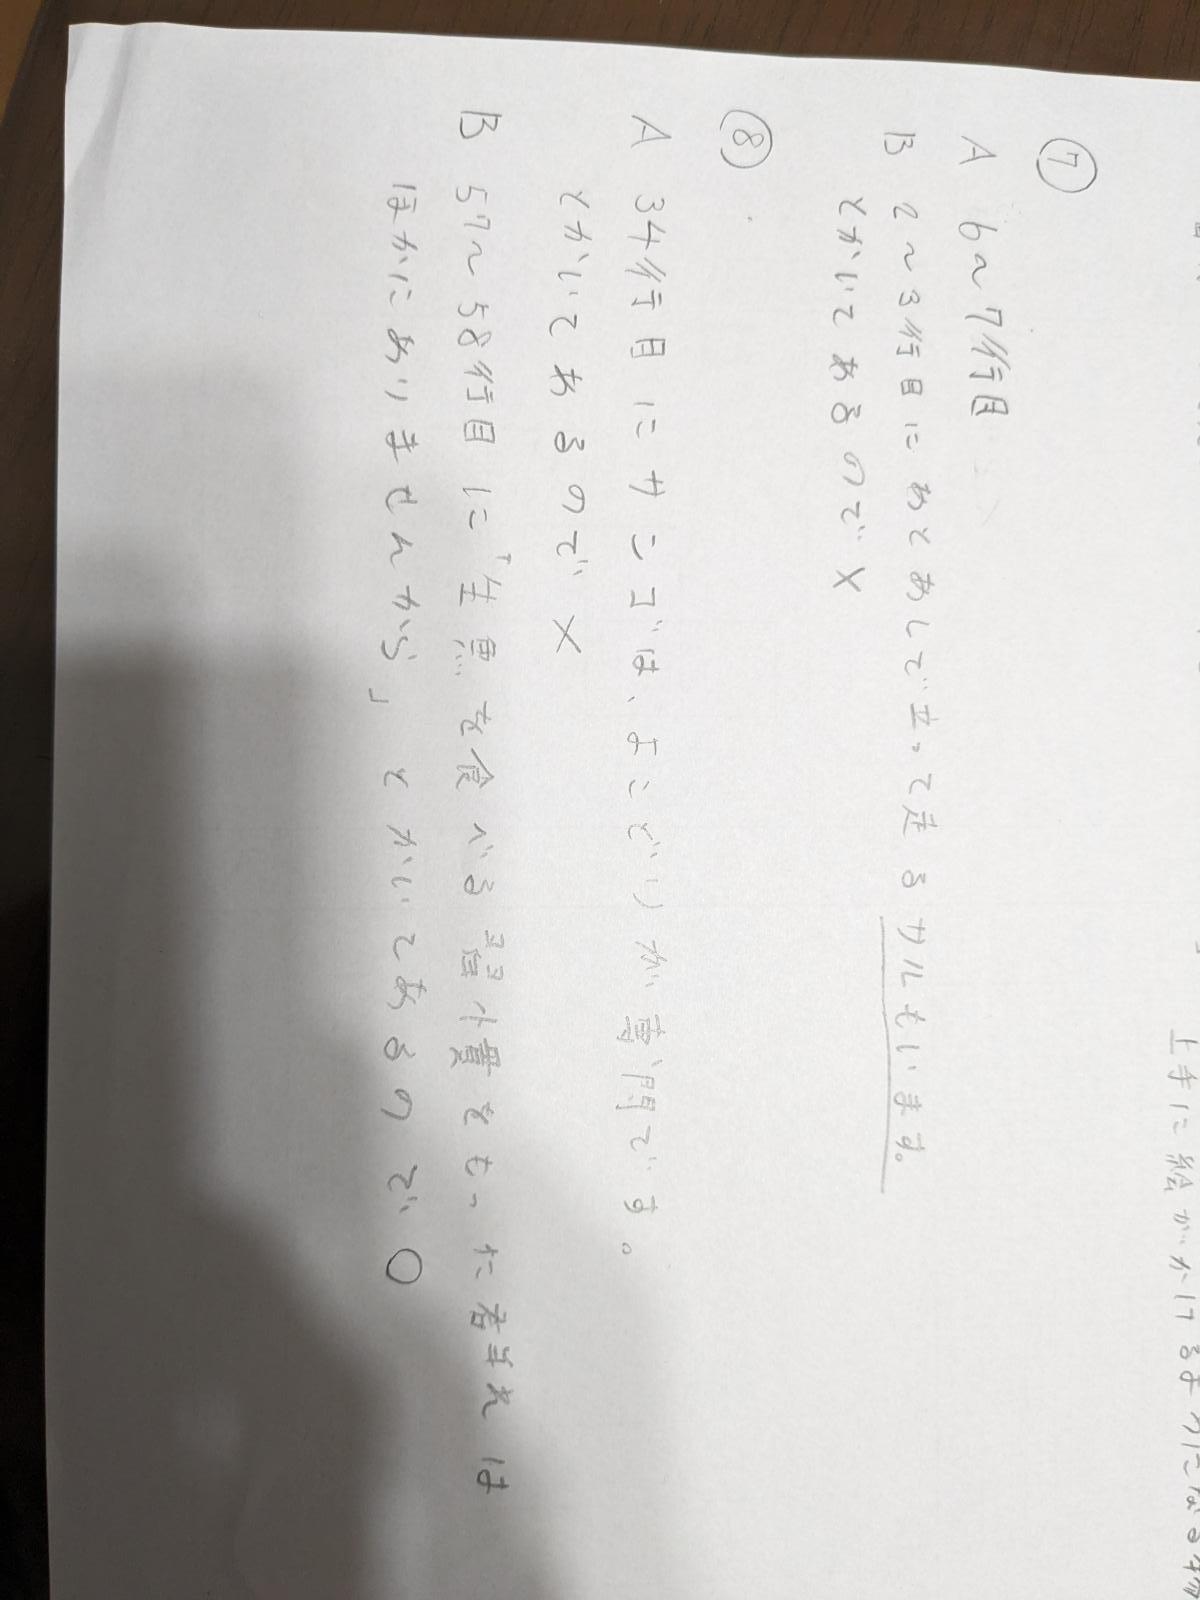 上手に絵がかけるようになる
⑦
A 6〜7行目
B 2〜3行目にあとあしで立って走るサルもいます。
とかいてあるので×
⑧
A 34行目にサンゴは、よこどりが専門です。
とかいてあるので×
B 57〜58行目に「生魚を食べる習慣をもった者それは
ほかにありませんから」とかいてあるので○